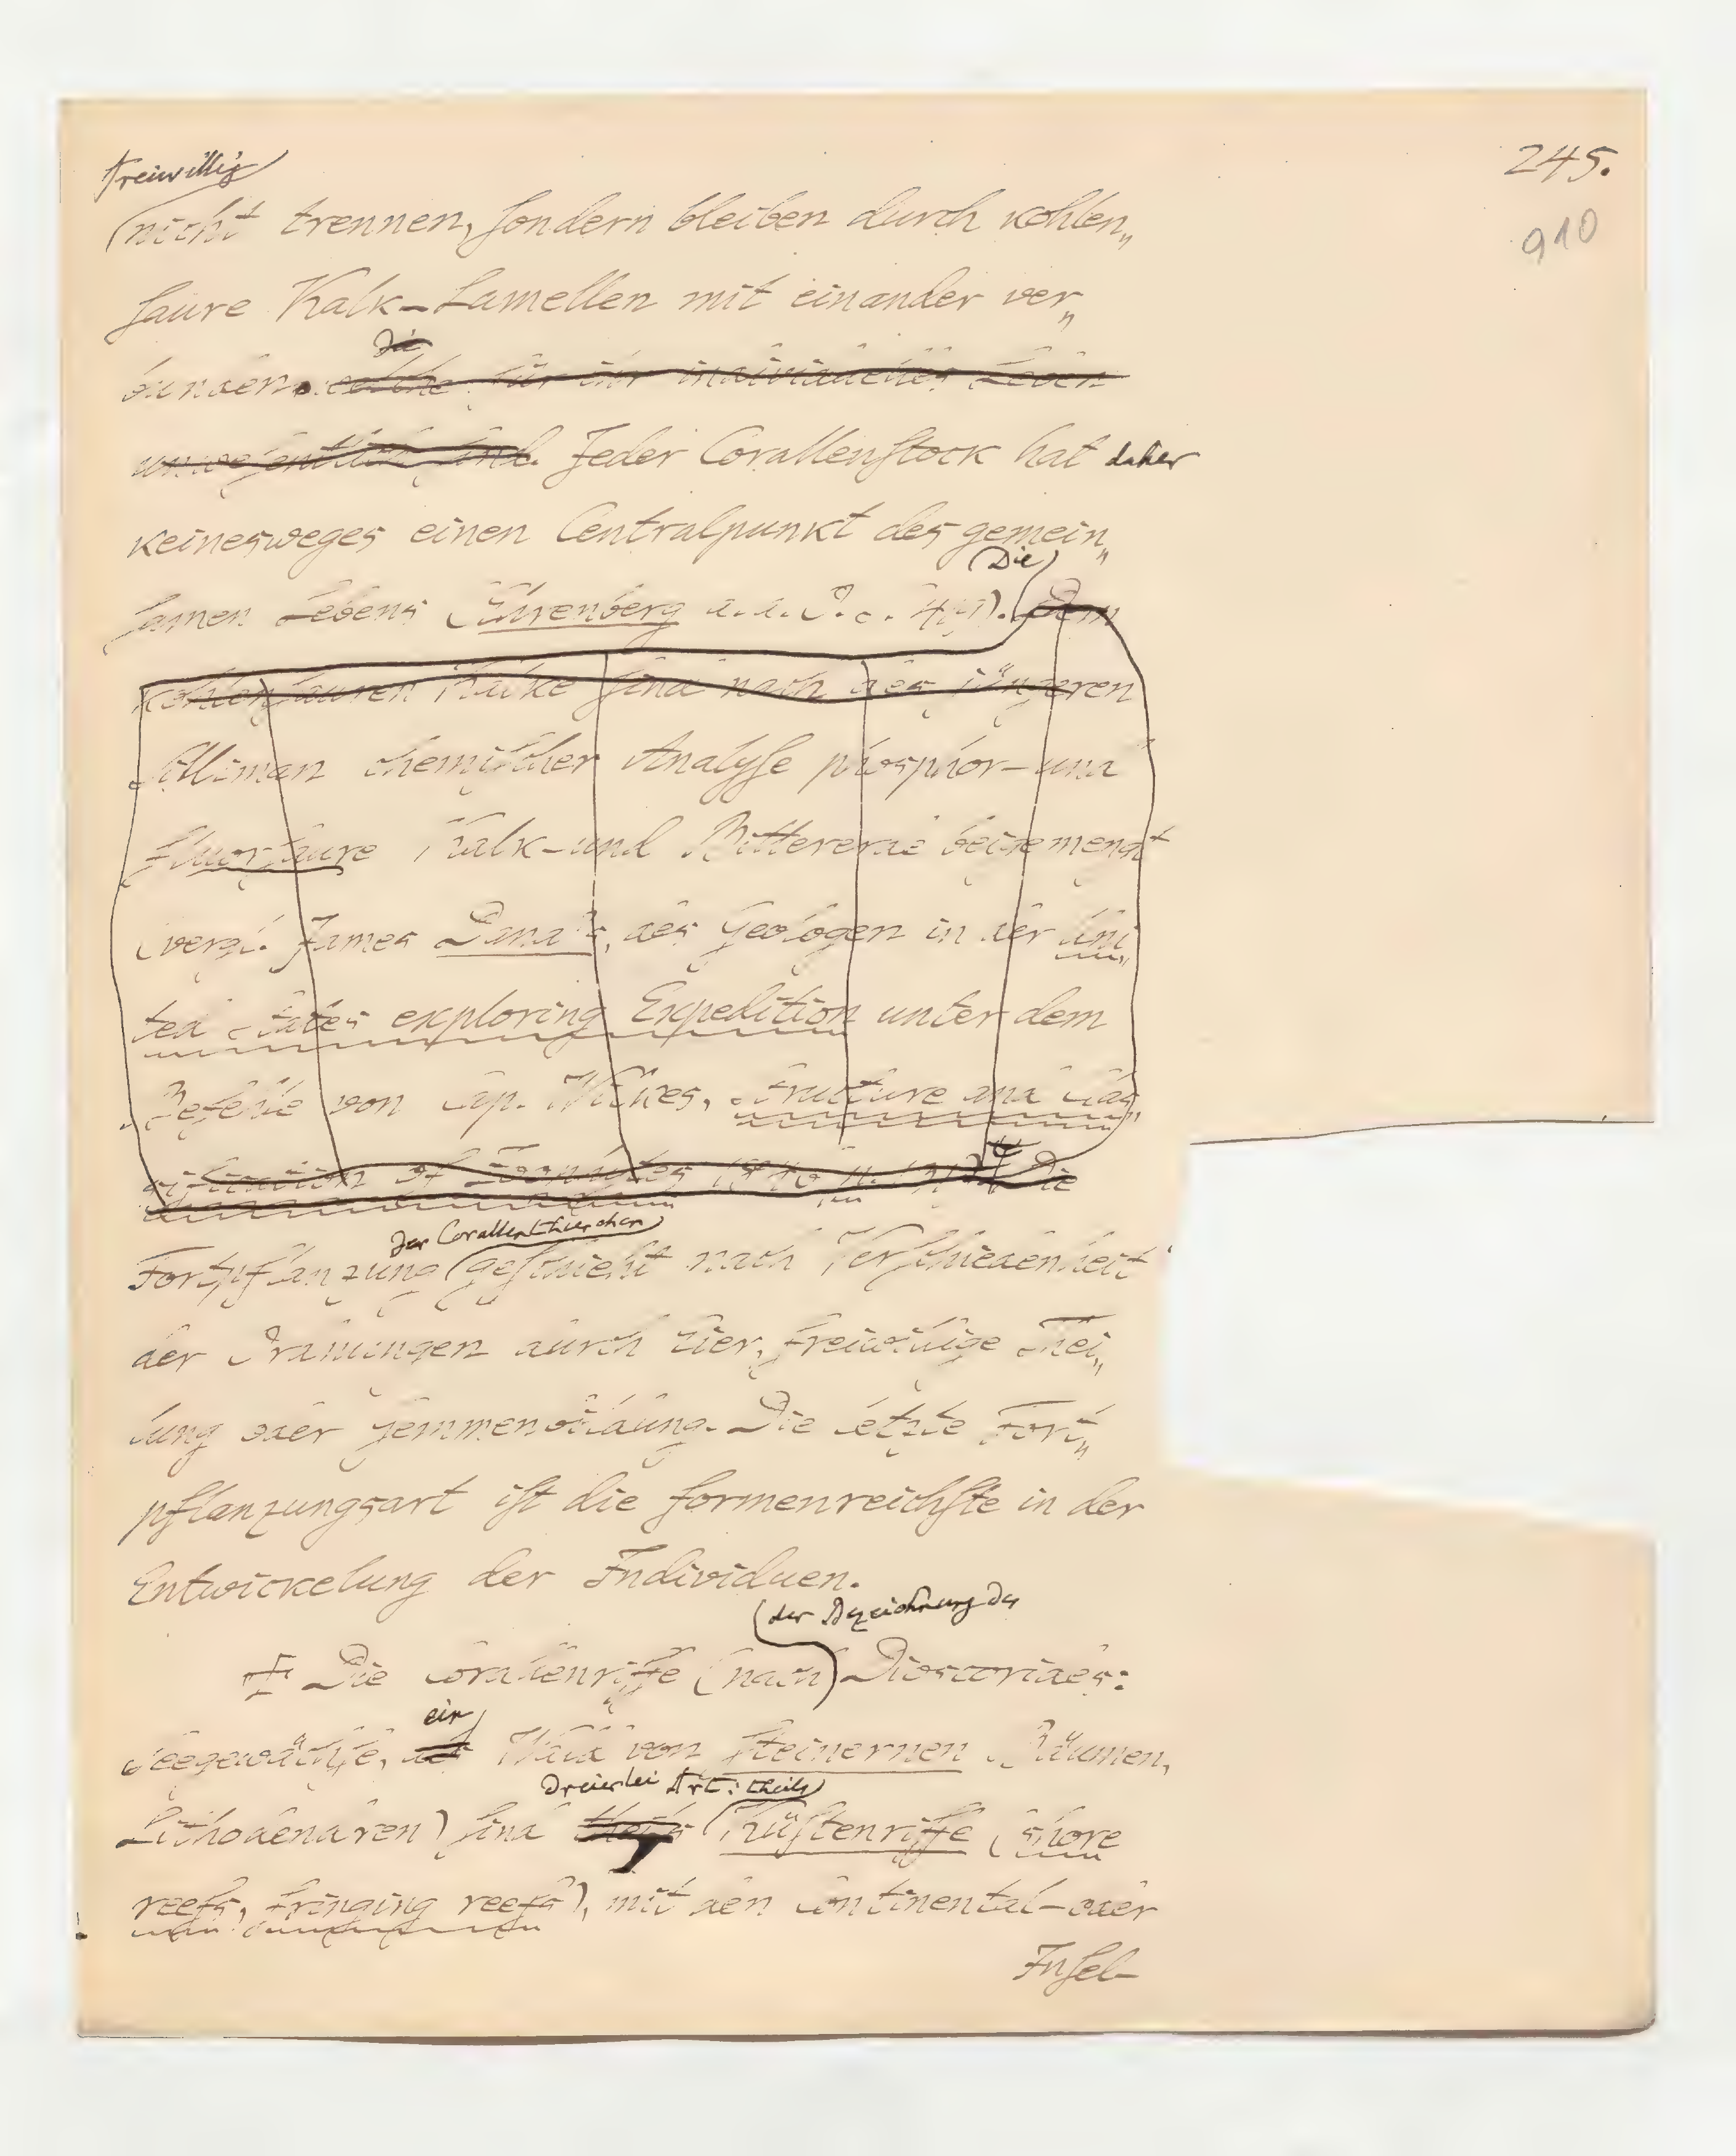 245.
910
freiwillig
nicht trennen, sondern bleiben durch kohlen„
saure Kalk-Lamellen mit einander ver„
die
bunden. welche für ihr individuelles Leben
unwesentlich sind. Jeder Corallenstock hat daher
keinesweges einen Centralpunkt des gemein„
(Die
samen Lebens (Ehrenberg a. a. O. S. 419). Dem
kohlensauren Kalke sind nach des jüngeren
Silliman chemischer Analyse phosphor- und
fluorsaure Kalk- und Bittererde beigemengt
(vergl. James Dana's, des Geologen in der Uni„
ted States exploring Expedition unter dem
Befehle von Cap. Wilkes, Structure and Clas„
sification of Zoophytes 1846 Die
der Corallenthierchen
Fortpflanzung geschieht nach Verschiedenheit
der Ordnungen durch Eier, freiwillige Thei„
lung oder Gemmenbildung. Die letzte Fort„
pflanzungsart ist die formenreichste in der
Entwickelung der Individuen.
(der Bezeichnung des
Die Corallenriffe (nach) Dioscorides:
ein
Seegewächse, Wald von steinernen Bäumen,
dreierlei Art: theils
Lithodendren) sind theils Küstenriffe (shore
reefs, fringing reefs), mit den continental- oder
Insel-